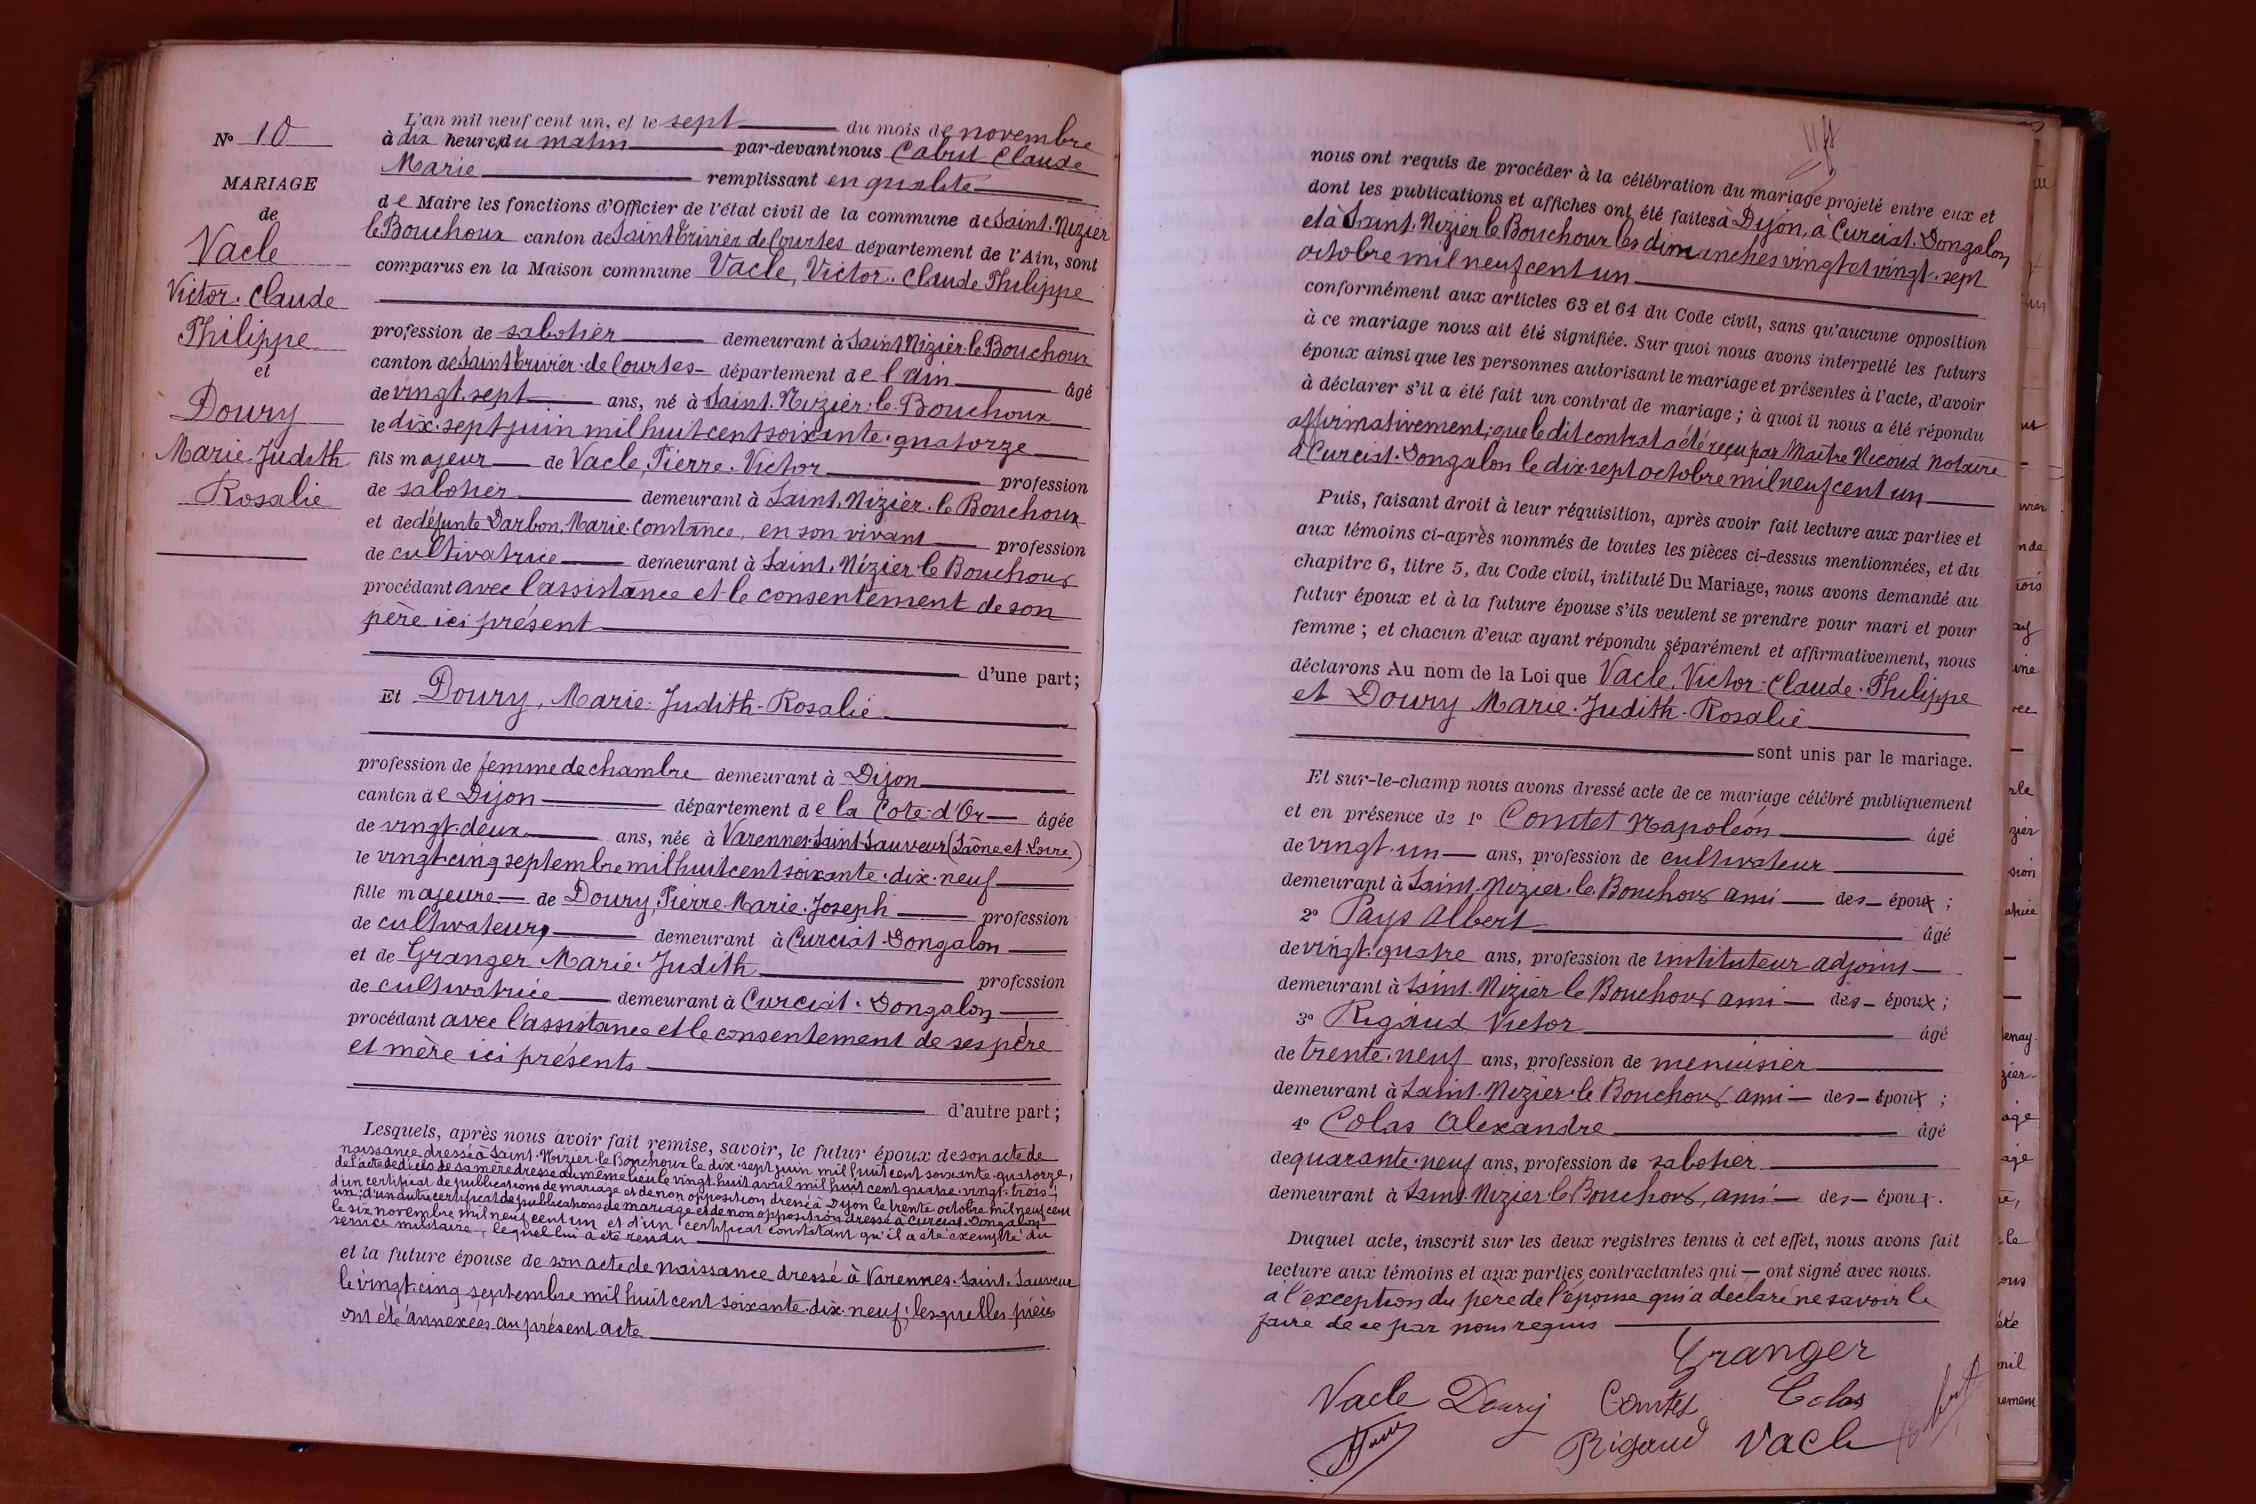 N° 10
MARIAGE
de
Vacle
Victor. Claude
Philippe
et
Doury
Marie. Judith
Rosalie
L'an mil neuf cent un, et le sept du mois de novembre
à dix heures du matin par-devant nous Cabut Claude
Marie remplissant en qualité
de Maire les fonctions d'Officier de l'état civil de la commune de Saint. Nizier
le Bouchoux canton de Saint Trivier de Courtes département de l'Ain, sont
comparus en la Maison commune Vacle, Victor. Claude Philippe
profession de sabotier demeurant à Saint Nizier. le Bouchoux
canton de Saint Trivier. de Courtes département de l'ain âgé
de vingt. sept ans, né à Saint. Nizier. le Bouchoux
le dix. sept juin mil huit cent soixante. quatorze
fils majeur de Vacle, Pierre. Victor profession
de sabotier demeurant à Saint. Nizier. le Bouchoux
et de défunte Darbon, Marie. Constance, en son vivant profession
de cultivatrice demeurant à Saint. Nizier. le Bouchoux
procédant avec l'assistance et le consentement de son
père ici présent
d'une part;
Et Doury, Marie. Judith. Rosalie
profession de femme de chambre demeurant à Dijon
canton de Dijon département de la Cote-d'Or âgée
de vingt. deux ans, née à Varennes Saint Sauveur (Saône et Loire)
le vingt. cinq septembre mil huit cent soixante. dix. neuf
fille majeure de Doury, Pierre Marie. Joseph profession
de cultivateur, demeurant à Curciat. Dongalon
et de Granger Marie. Judith profession
de cultivatrice demeurant à Curciat. Dongalon
procédant avec l'assistance et le consentement de ses père
et mère ici présents
d'autre part;
Lesquels, après nous avoir fait remise, savoir, le futur époux de son acte de
naissance dressé à Saint. Nizier. le Bouchoux le dix. sept juin mil huit cent soixante. quatorze,
de l'acte de décès de sa mère dressé au même lieu le vingt. huit avril mil huit cent quatre. vingt. trois;
d'un certificat de publications de mariage et de non opposition dressé à Dijon le trente octobre mil neuf cent
un; d'un autre certificat de publications de mariage et de non opposition dressé à Curciat. Dongalon
le six novembre mil neuf cent un et d'un certificat constatant qu'il a été exempté du
service militaire, lequel lui a été rendu
et la future épouse de son acte de naissance dressé à Varennes. Saint. Sauveur
le vingt. cinq septembre mil huit cent soixante. dix. neuf; lesquelles pièces
ont été annexées au présent acte
nous ont requis de procéder à la célébration du mariage projeté entre eux et
dont les publications et affiches ont été faites à Dijon, à Curciat. Dongalon,
et à Saint. Nizier le Bouchoux les dimanches vingt et vingt. sept
octobre mil neuf cent un
conformément aux articles 63 et 64 du Code civil, sans qu'aucune opposition
à ce mariage nous ait été signifiée. Sur quoi nous avons interpellé les futurs
époux ainsi que les personnes autorisant le mariage et présentes à l'acte, d'avoir
à déclarer s'il a été fait un contrat de mariage; à quoi il nous a été répondu
affirmativement; que le dit contrat a été reçu par Maître Nicoud Notaire
à Curciat. Dongalon le dix. sept octobre mil neuf cent un
Puis, faisant droit à leur réquisition, après avoir fait lecture aux parties et
aux témoins ci-après nommés de toutes les pièces ci-dessus mentionnées, et du
chapitre 6, titre 5, du Code civil, intitulé Du Mariage, nous avons demandé au
futur époux et à la future épouse s'ils veulent se prendre pour mari et pour
femme; et chacun d'eux ayant répondu séparément et affirmativement, nous
déclarons Au nom de la Loi que Vacle, Victor. Claude. Philippe
et Doury Marie. Judith. Rosalie
sont unis par le mariage.
Et sur-le-champ nous avons dressé acte de ce mariage célébré publiquement
et en présence de 1° Comtet Napoléon âgé
de vingt. un ans, profession de cultivateur
demeurant à Saint. Nizier. le Bouchoux ami des époux;
2° Pays Albert âgé
de vingt. quatre ans, profession de instituteur adjoint
demeurant à Saint. Nizier le Bouchoux ami des époux;
3° Rigaud Victor âgé
de trente. neuf ans, profession de menuisier
demeurant à Saint. Nizier. le Bouchoux ami des époux;
4° Colas Alexandre âgé
de quarante. neuf ans, profession de sabotier
demeurant à Saint. Nizier. le Bouchoux, ami des époux.
Duquel acte, inscrit sur les deux registres tenus à cet effet, nous avons fait
lecture aux témoins et aux parties contractantes qui ont signé avec nous.
à l'exception du père de l'épouse qui a déclaré ne savoir le
faire de ce par nous requis
Granger
Vacle Doury Comtet Colas
Rigaud Vacle Cabut